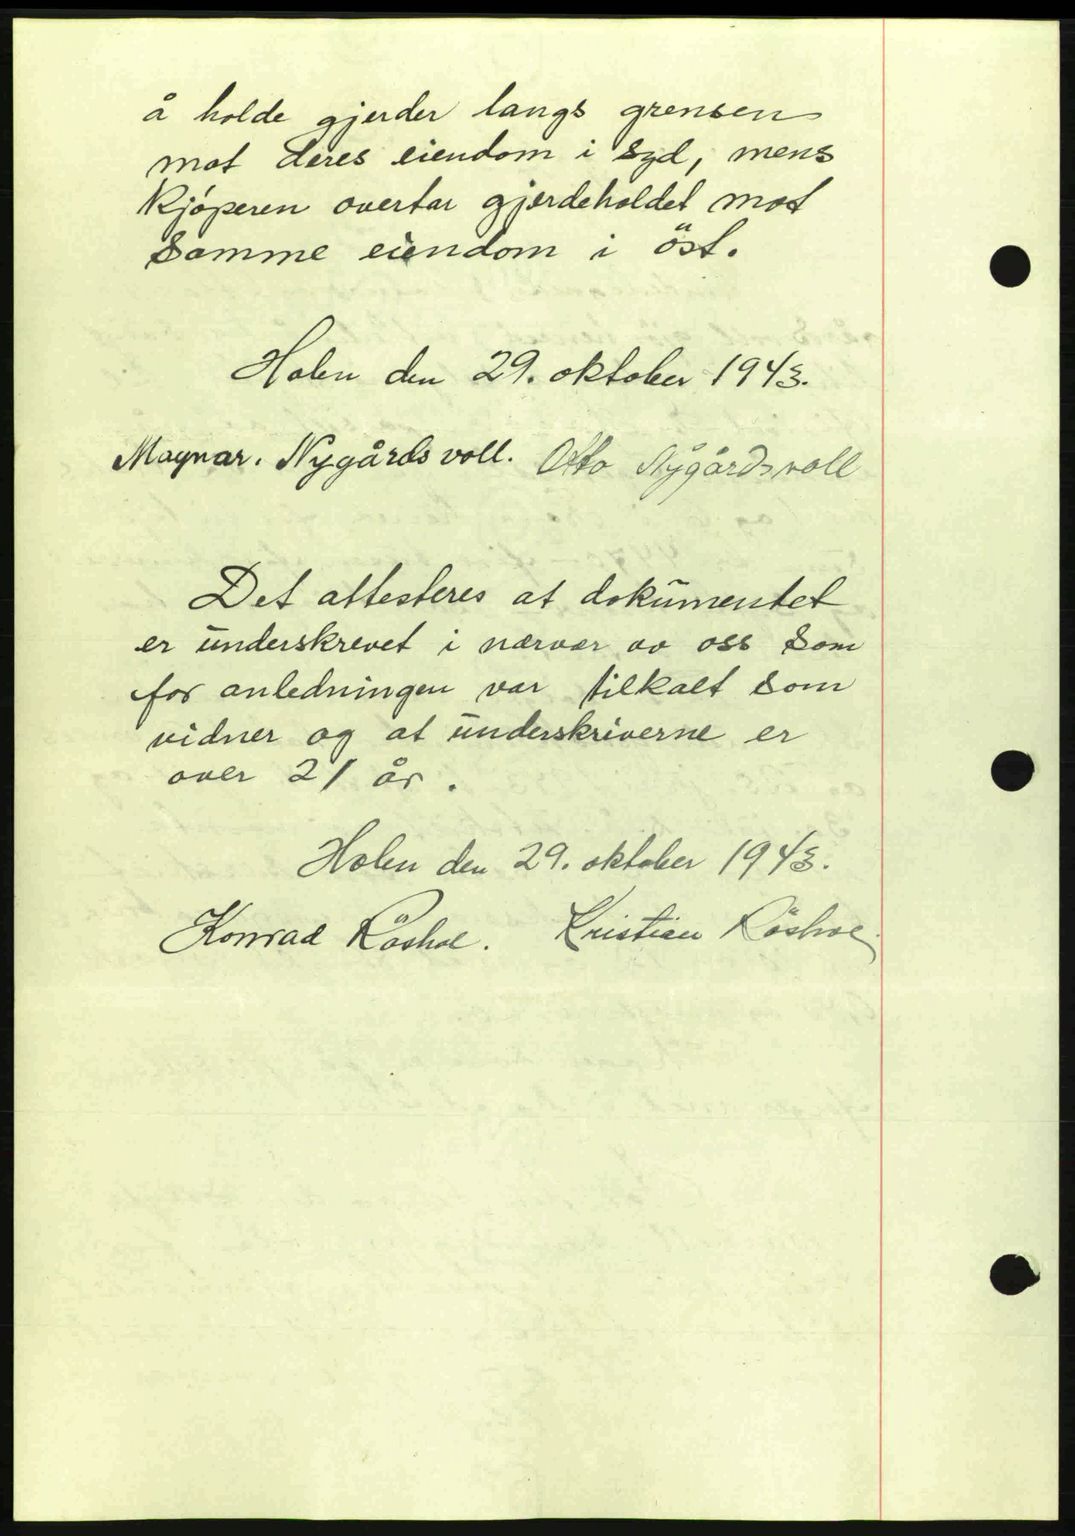 å holde gjerder langs grensen
mot deres eiendom i syd, mens
kjøperen overtar gjerdeholdet mot
samme eiendom i öst.
Holen den 29. oktober 1943.
Magnar. Nygårdsvoll. Otto Nygårdsvoll
Det attesteres at dokumentet
er underskrevet i nærvær av oss som
for anledningen var tilkalt som
vidner og at underskriverne er
over 21 år.
Holen den 29. oktober 1943.
Konrad Röshol. Kristian Röshol.